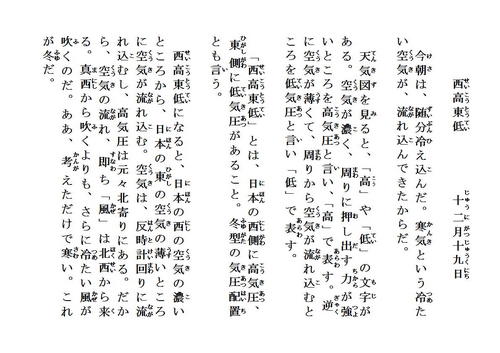 西高東低
十二月十九日
今朝は、随分冷え込んだ。寒気という冷た
い空気が、流れ込んできたからだ。
天気図を見ると、「高」や「低」の文字が
ある。空気が濃く、周りに押し出す力が強
いところを高気圧と言い、「高」で表す。逆
に空気が薄くて、周りから空気が流れ込むと
ころを低気圧と言い「低」で表す。
「西高東低」とは、日本の西側に高気圧、
東側に低気圧があること。冬型の気圧配置
とも言う。
西高東低になると、日本の西の空気の濃い
ところから、日本の東の空気の薄いところ
に空気が流れ込む。空気は、反時計回りに流
れ込むし、高気圧は元々北寄りにある。だか
ら、空気の流れ、即ち「風」は北西から来
る。真西から吹くよりも、さらに冷たい風が
吹くのだ。ああ、考えただけで寒い。これ
が冬だ。